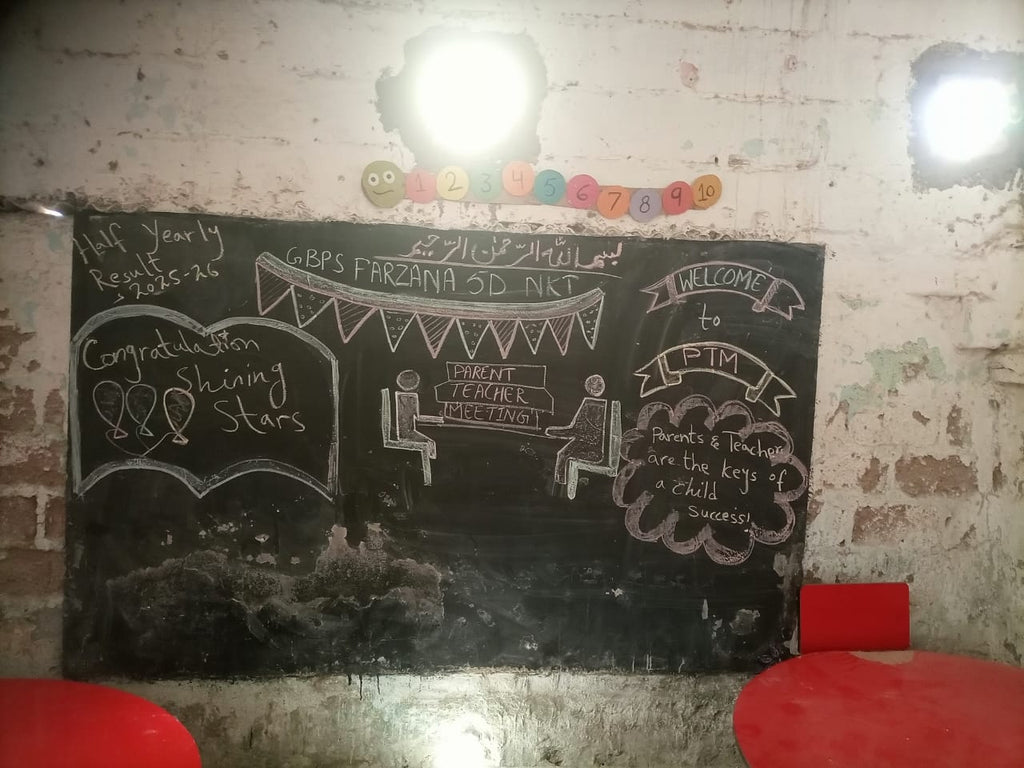 1 2 3 4 5 6 7 8 9 10
بسم اللہ الرحمٰن الرحیم
GBPS FARZANA 5D NKT
Half Yearly
Result
2025-26
Congratulation
Shining
Stars
PARENT
TEACHER
MEETING!
WELCOME
to
PTM
Parents & Teacher
are the keys of
a child
Success!